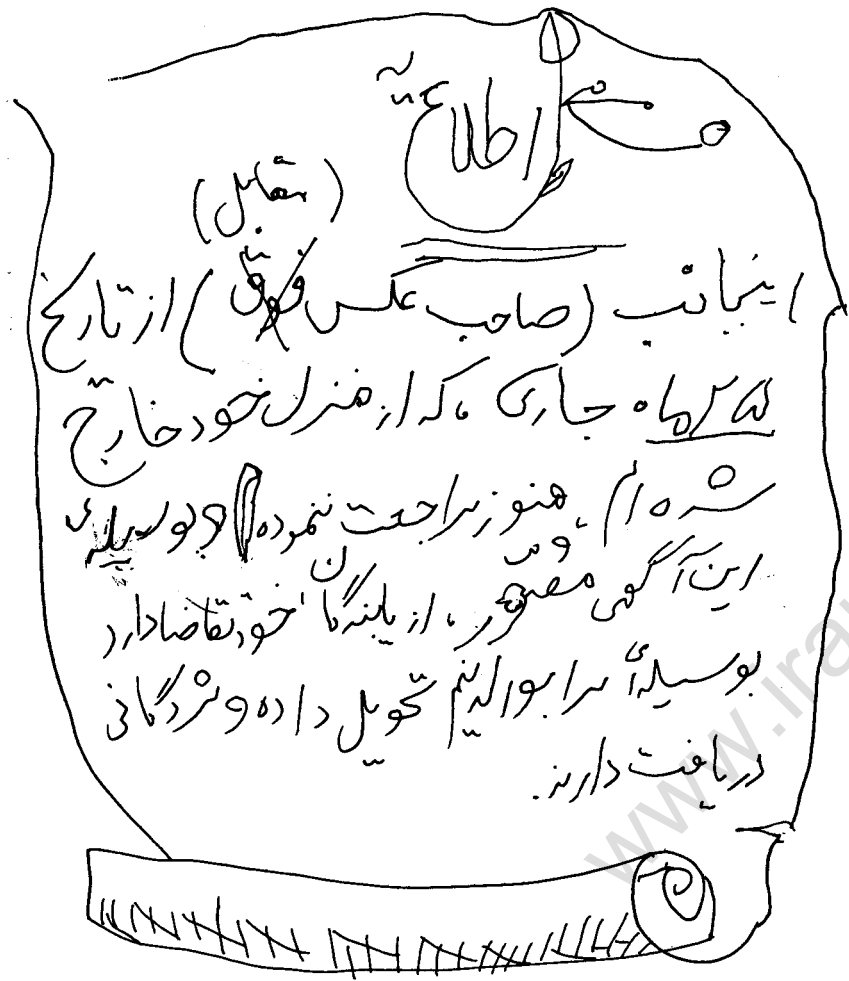 اطلاعیّه
(مقابل)
اینجانب (صاحب عکس فوق) از تاریخ
۲۵ ماه جاری، که از منزل خود خارج
شده‌ام، هنوز مراجعت ننموده و بوسیله‌ی
این آگهی مصوّر، از یابندگان خود تقاضا دارد
بوسیله‌أ مرا بوالدینم تحویل داده و مژدگانی
دریافت دارند.
www.Ira